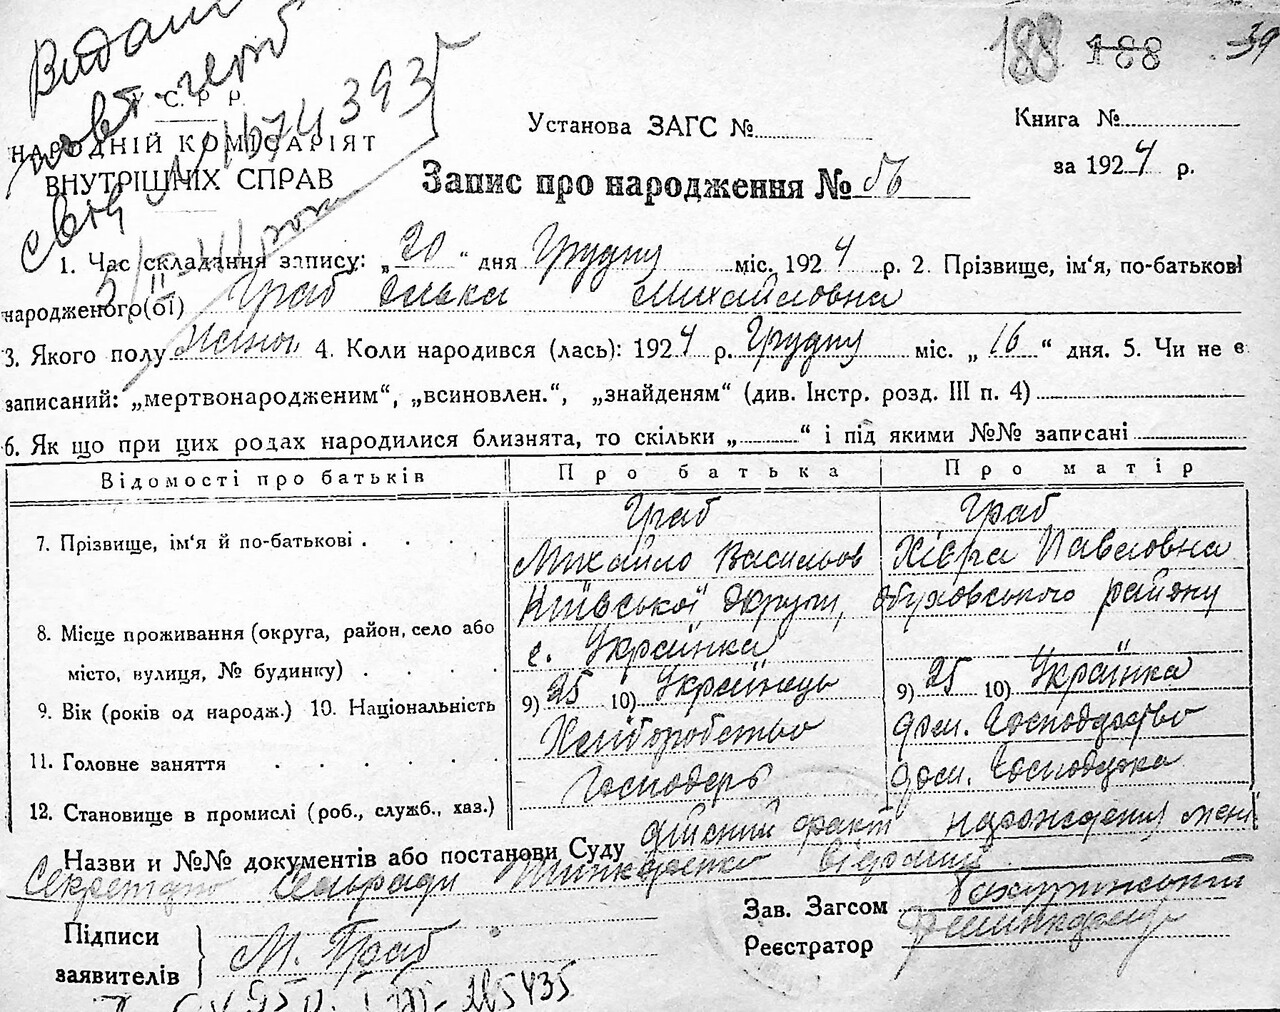 Видано
повт. герб
188 188 39
У. С. Р. Р.
НАРОДНІЙ КОМІСАРІЯТ
ВНУТРІШНІХ СПРАВ
Установа ЗАГС №
Книга №
за 1924 р.
Запис про народження № 56
1. Час складання запису: „20“ дня Грудня міс. 1924 р. 2. Прізвище, ім'я, по-батькові
народженого(бі) Граб Михайловна
3. Якого полу 4. Коли народився (лась): 1924 р. Грудня міс. „16“ дня. 5. Чи не є
записаний: „мертвонародженим“, „всиновлен.“, „знайденям“ (див. Інстр. розд. III п. 4)
6. Як що при цих родах народилися близнята, то скільки „ “ і під якими №№ записані
Відомості про батьків Про батька Про матір
7. Прізвище, ім'я й по-батькові Граб Граб
Михайло Васильов Хівря Павловна
8. Місце проживання (округа, район, село або Київської округи, Обуховського району
місто, вулиця, № будинку) с. Українка
9. Вік (років од народж.) 10. Національність 9) 25 10) Українець 9) 25 10) Українка
11. Головне заняття Хліборобство дом. Господарство
12. Становище в промислі (роб., служб., хаз.) Господарь дом. Господарка
Назви и №№ документів або постанови Суду дійсний факт народження мені
Секретарю Сельради відомий
Підписи заявителів М. Граб
Зав. Загсом
Реєстратор
285435